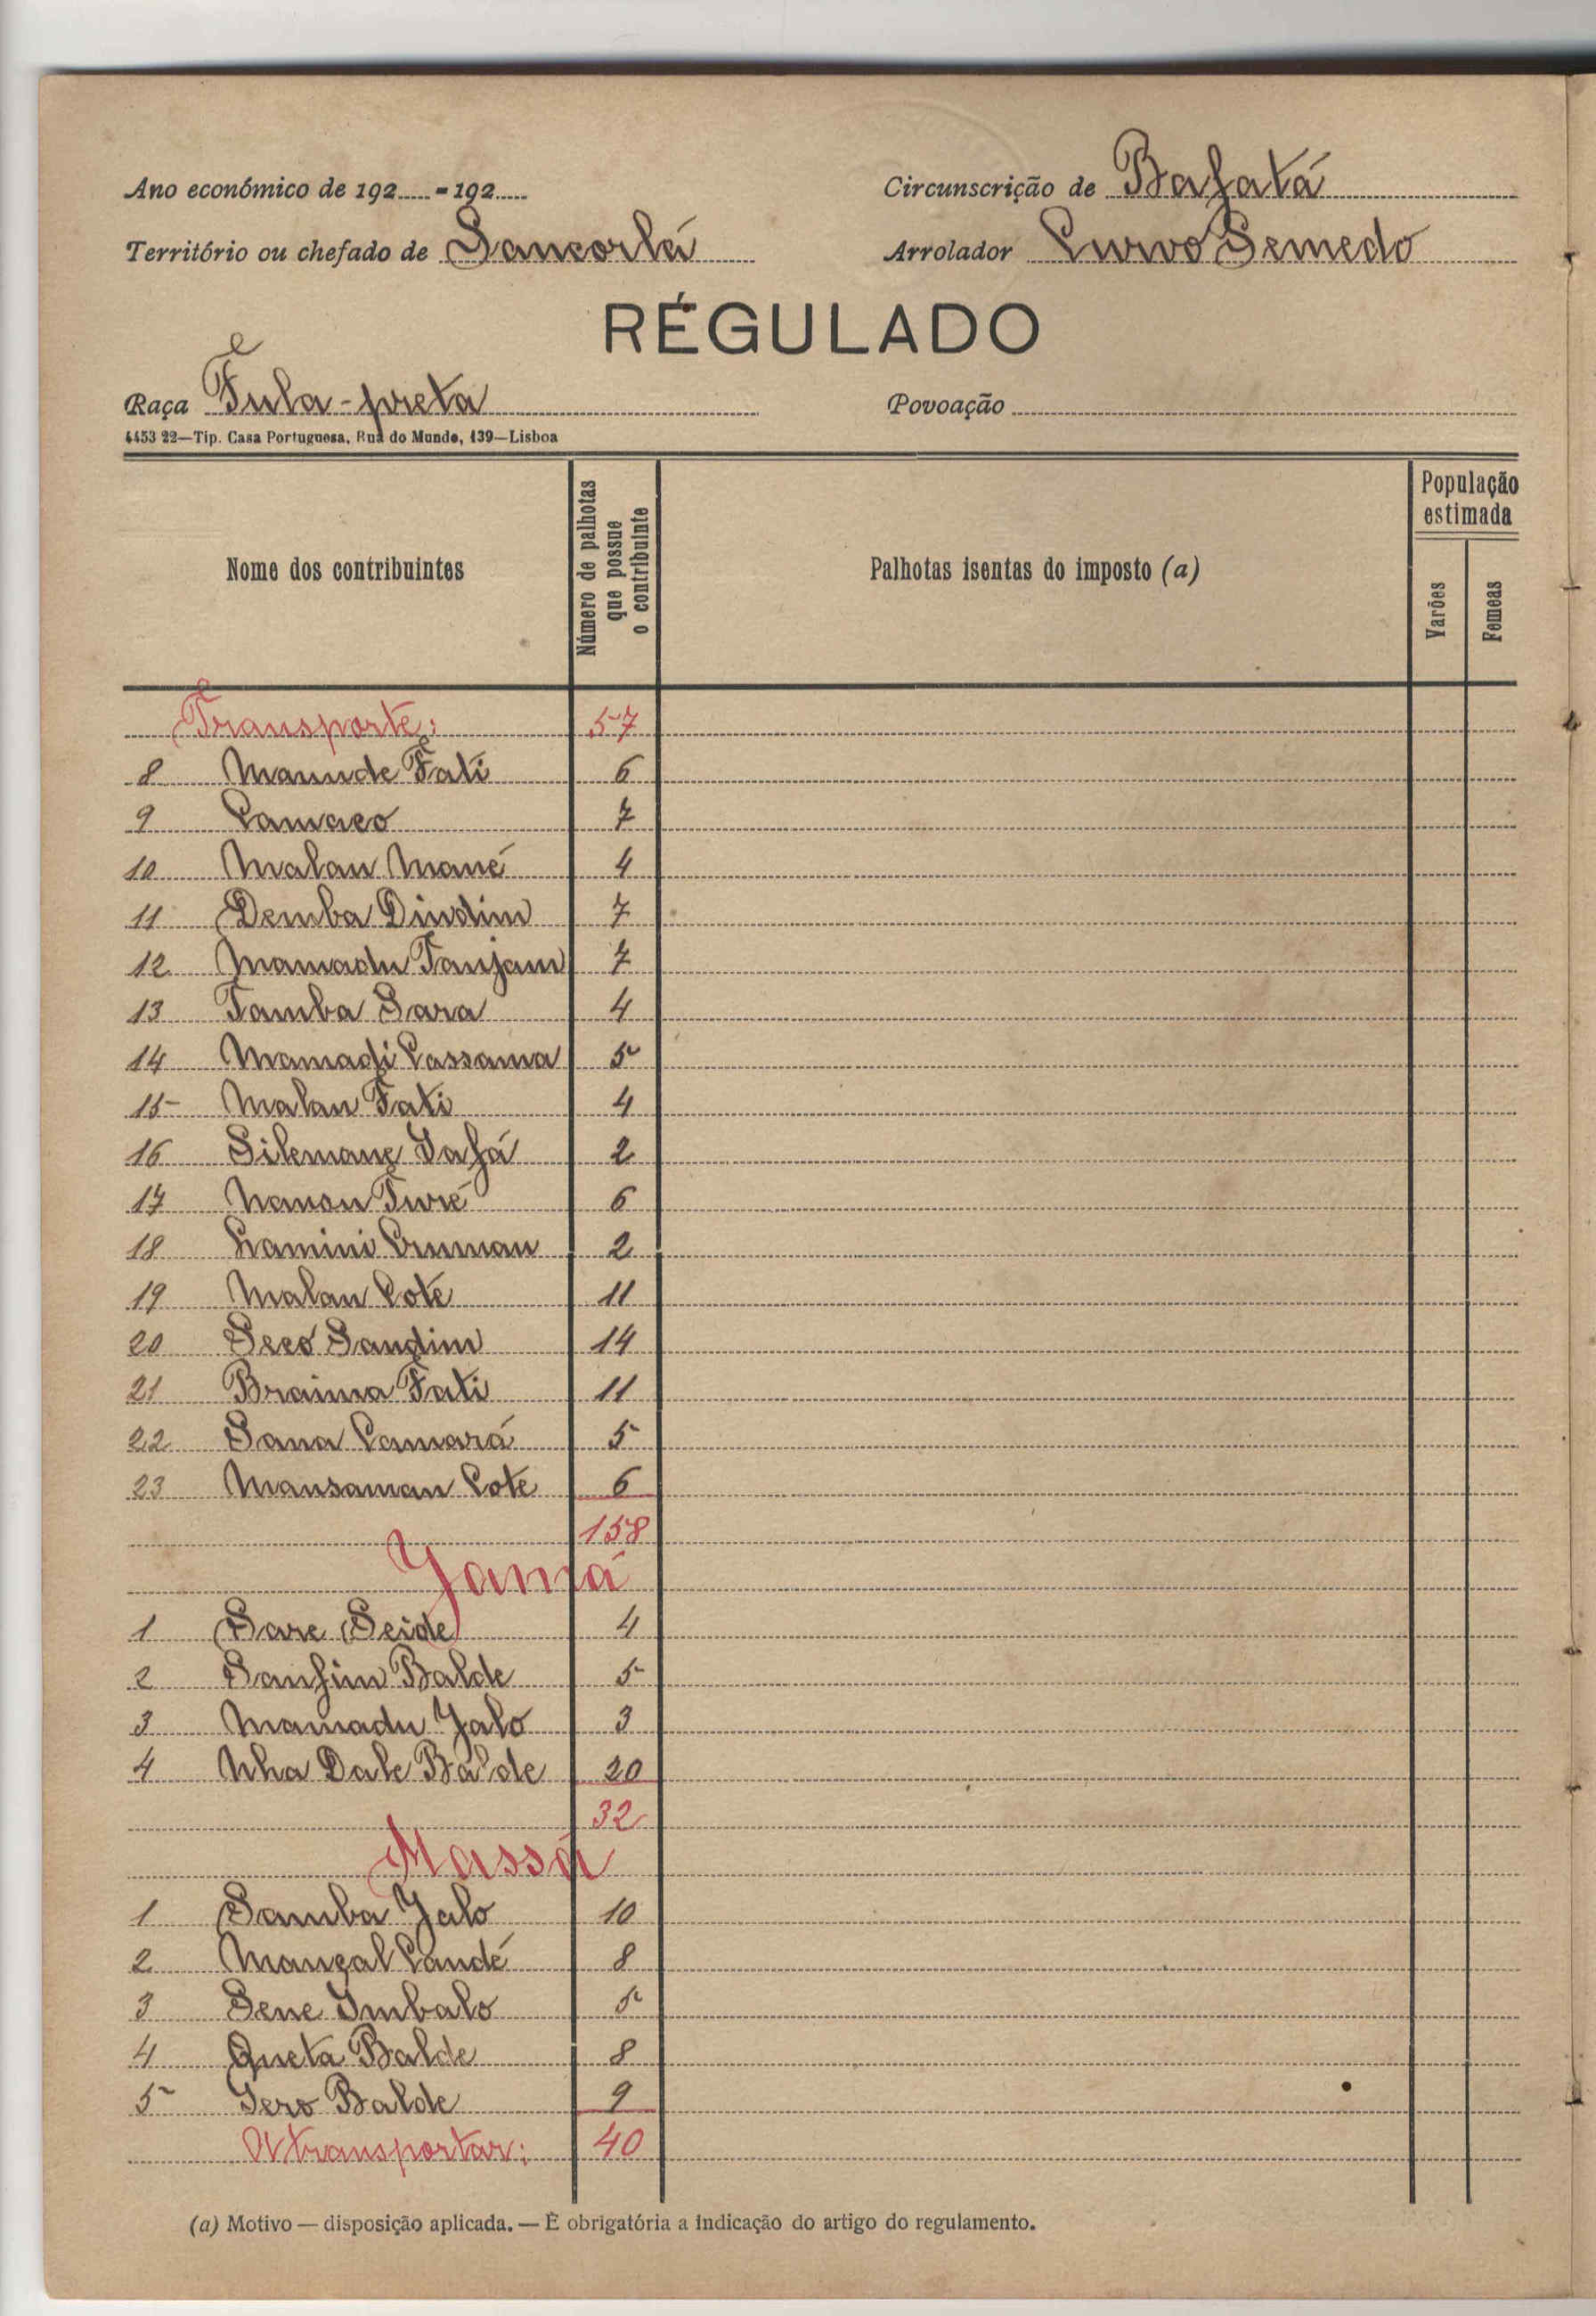 Ano económico de 192.....-192.....
Circunscrição de Bafatá
Território ou chefado de Sancorlá
Arrolador Curvo Semedo
RÉGULADO
Raça Fula-preta
Povoação
4453 22—Tip. Casa Portuguesa, Rua do Mundo, 139—Lisboa
Nome dos contribuintes
Número de palhotas que possue o contribuinte
Palhotas isentas do imposto (a)
População estimada
Varões
Femeas
Transporte: 57
8 Maunde Fati 6
9 Camaco 7
10 Malan Mané 4
11 Demba Dindim 7
12 Mamadu Tanjam 7
13 Tamba Sara 4
14 Mamadi Cassama 5
15 Malan Fati 4
16 Silemane Jafá 2
17 Nansu Turé 6
18 Lamini 2
19 Malan Cote 11
20 Seco Sandim 14
21 Braima Fati 11
22 Sana Camará 5
23 Mansaman Cote 6
158
Jamá
1 Sare Seide 4
2 Sanfim Balde 5
3 Mamadu Jalo 3
4 Nha Dale Balde 20
32
Massá
1 Samba Jalo 10
2 Mangal Candé 8
3 Sene Imbalo 5
4 Queta Balde 8
5 Iero Balde 9
A transportar: 40
(a) Motivo — disposição aplicada. — É obrigatória a indicação do artigo do regulamento.